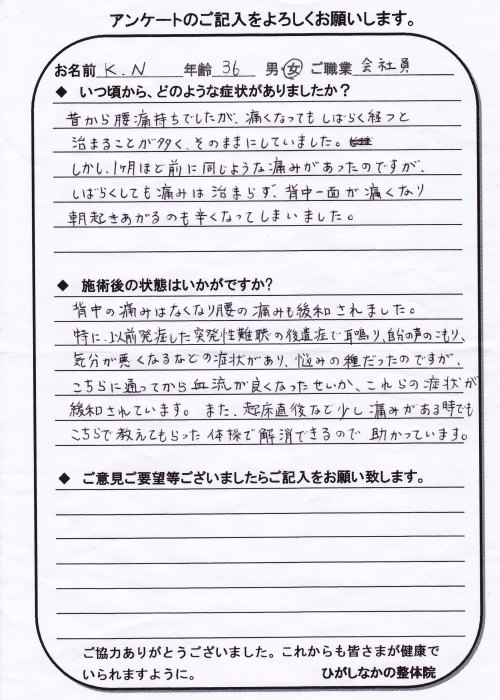 アンケートのご記入をよろしくお願いします。
お名前 K.N 年齢 36 男・女 ご職業 会社員
◆ いつ頃から、どのような症状がありましたか？
昔から腰痛持ちでしたが、痛くなってもしばらく経つと
治まることが多く、そのままにしていました。
しかし、1ヶ月ほど前に同じような痛みがあったのですが、
しばらくしても痛みは治まらず、背中一面が痛くなり
朝起きあがるのも辛くなってしまいました。
◆ 施術後の状態はいかがですか?
背中の痛みはなくなり腰の痛みも緩和されました。
特に、以前発症した突発性難聴の後遺症で耳鳴り、自分の声のこもり、
気分が悪くなるなどの症状があり、悩みの種だったのですが、
こちらに通ってから血流が良くなったせいか、これらの症状が
緩和されています。また、起床直後など少し痛みがある時でも
こちらで教えてもらった体操で解消できるので助かっています。
◆ ご意見ご要望等ございましたらご記入をお願い致します。
ご協力ありがとうございました。これからも皆さまが健康で
いられますように。 ひがしなかの整体院